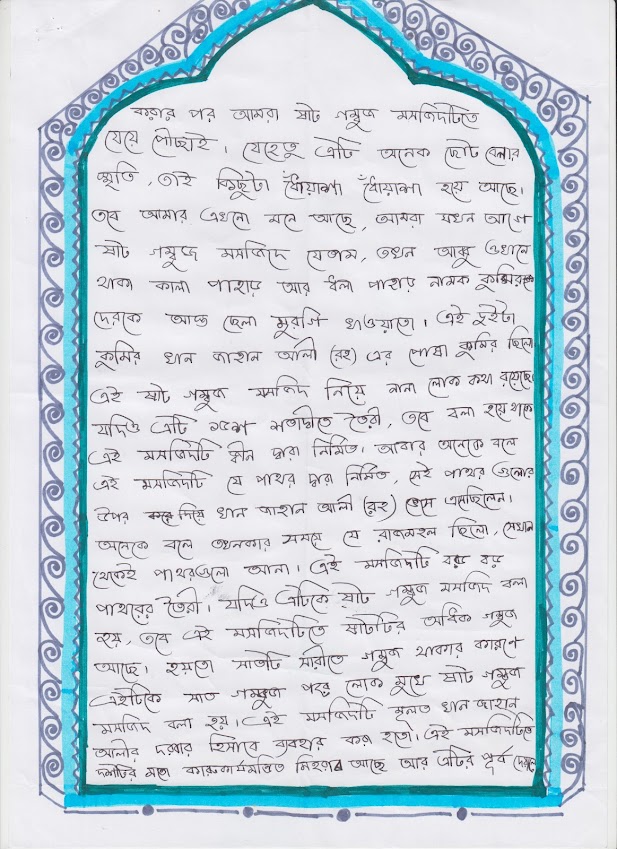 করার পর আমরা ষাট গম্বুজ মসজিদটিতে
যেয়ে পৌছাই। যেহেতু এটি অনেক ছোট বেলার
স্মৃতি, তাই কিছুটা ধোঁয়াশা ধোঁয়াশা হয়ে আছে।
তবে আমার এখনো মনে আছে, আমরা যখন আগে
ষাট গম্বুজ মসজিদে যেতাম, তখন আব্বু ওখানে
থাকা কালা পাহাড় আর ধলা পাহাড় নামক কুমির
দেরকে আস্ত ছেলা মুরগি খাওয়াতো। এই দুইটা
কুমির খান জাহান আলী (রহ) এর পোষা কুমির ছিলো
এই ষাট গম্বুজ মসজিদ নিয়ে নানা লোক কথা রয়েছে।
যদিও এটি ১৫শ শতাব্দীতে তৈরী, তবে বলা হয়ে থাকে
এই মসজিদটি জ্বীন দ্বারা নির্মিত। আবার অনেকে বলে
এই মসজিদটি যে পাথর দ্বারা নির্মিত, সেই পাথর গুলোর
উপর দিয়ে খান জাহান আলী (রহ) ভেসে এসেছিলেন।
অনেকে বলে তখনকার সময়ে যে রাজমহল ছিলো, সেখান
থেকেই পাথরগুলো আনা। এই মসজিদটি বড় বড়
পাথরের তৈরী। যদিও এটিকে ষাট গম্বুজ মসজিদ বলা
হয়, তবে এই মসজিদটিতে ষাটটির অধিক গম্বুজ
আছে। হয়তো সাতটি সারীতে গম্বুজ থাকার কারণে
এইটিকে সাত গম্বুজ পরে লোক মুখে ষাট গম্বুজ
মসজিদ বলা হয়। এই মসজিদটি মূলত খান জাহান
আলীর দরবার হিসাবে ব্যবহার করা হতো। এই মসজিদটিতে
দশটির মতো কারুকার্যমন্ডিত মিহরাব আছে আর এটির পূর্ব দেয়ালে